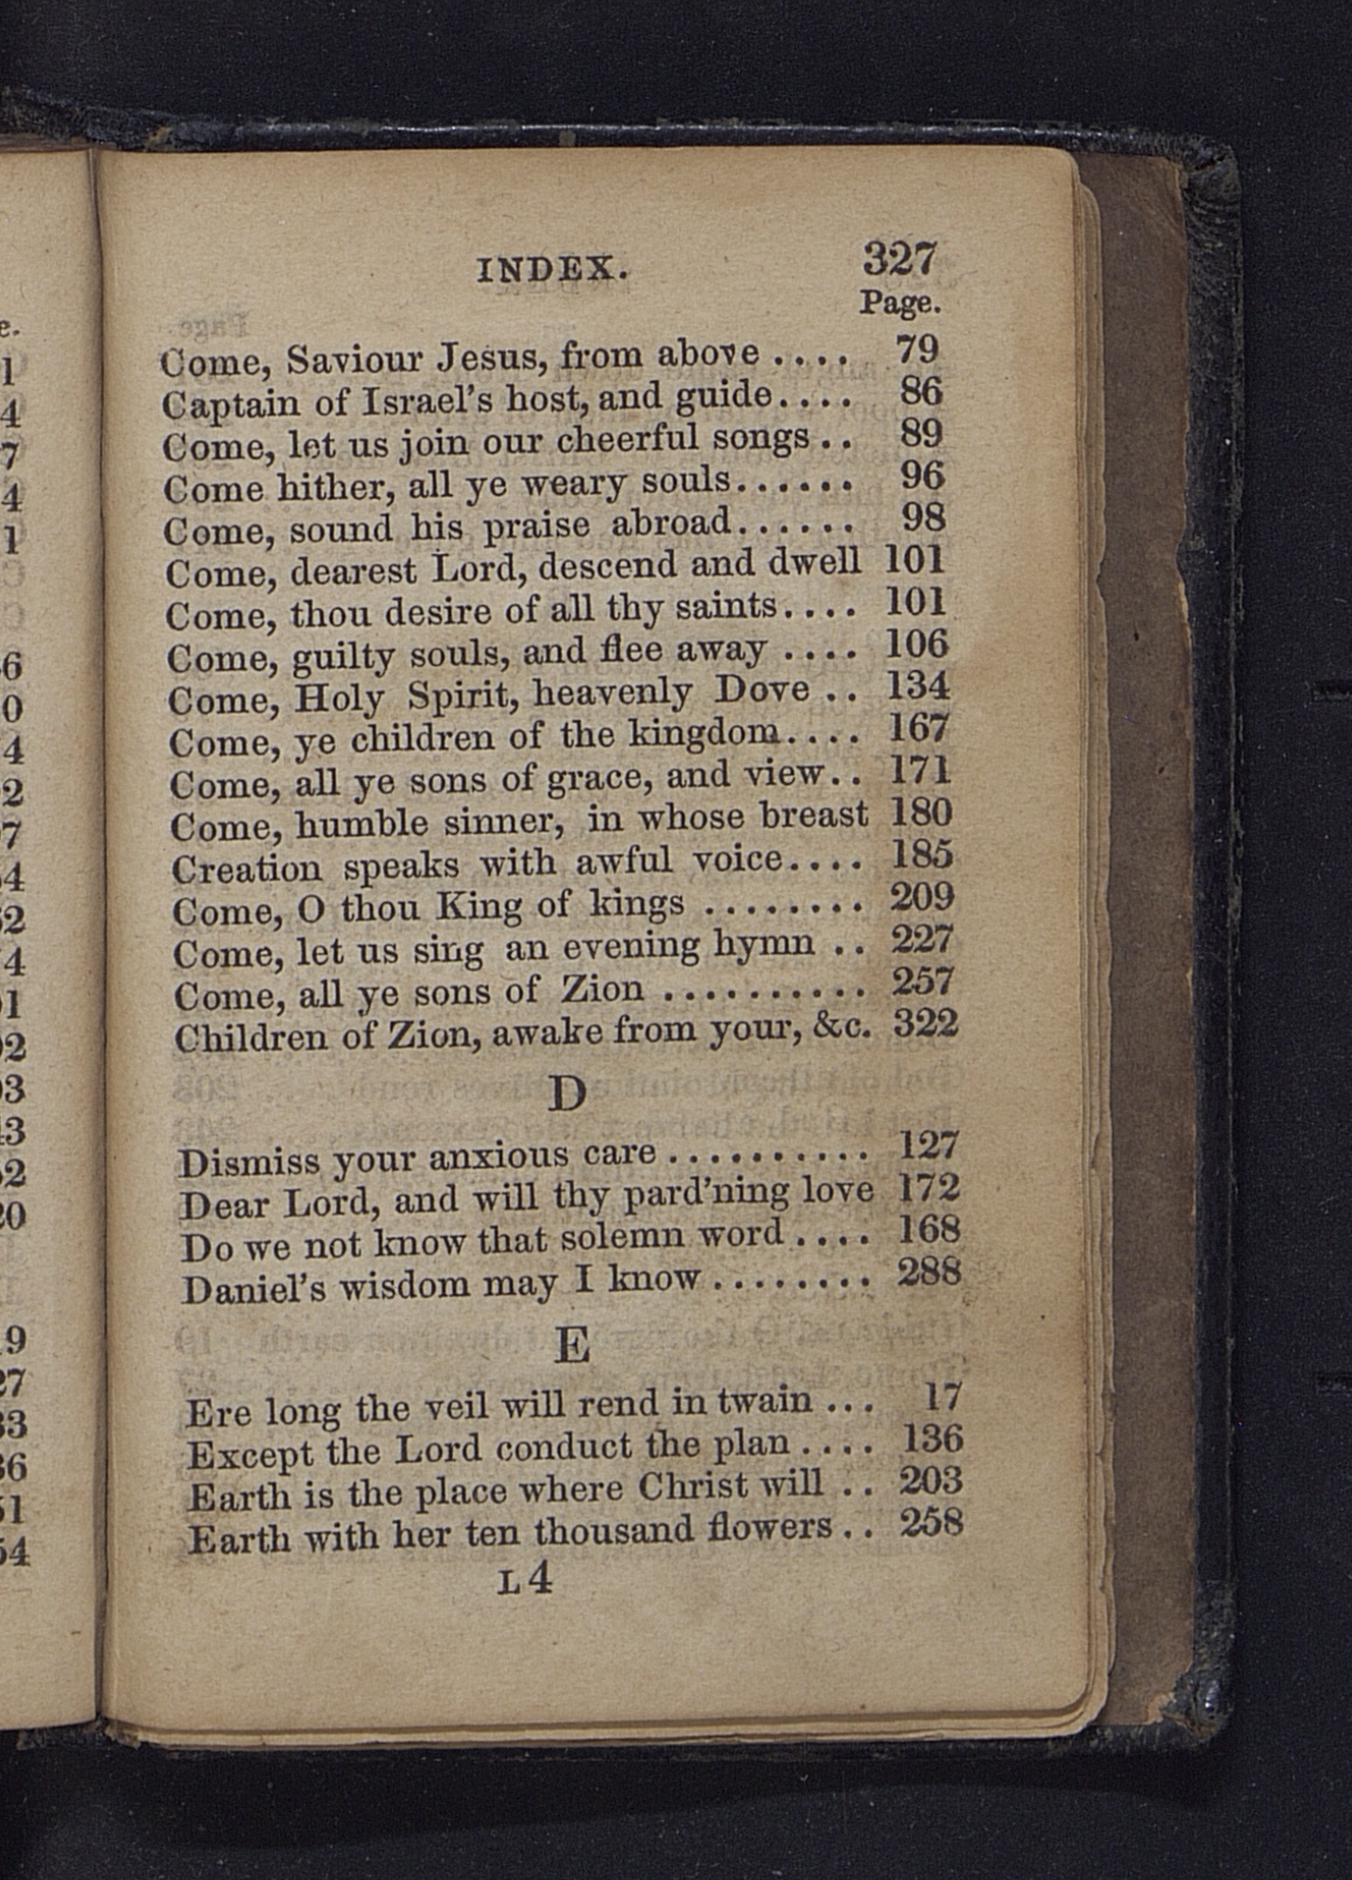 e.
1
4
7
4
1
6
0
4
2
7
4
2
4
1
2
3
3
2
20
9
27
33
36
51
54
INDEX. 327
Page.
Come, Saviour Jesus, from above .... 79
Captain of Israel's host, and guide.... 86
Come, let us join our cheerful songs .. 89
Come hither, all ye weary souls...... 96
Come, sound his praise abroad...... 98
Come, dearest Lord, descend and dwell 101
Come, thou desire of all thy saints.... 101
Come, guilty souls, and flee away .... 106
Come, Holy Spirit, heavenly Dove .. 134
Come, ye children of the kingdom.... 167
Come, all ye sons of grace, and view.. 171
Come, humble sinner, in whose breast 180
Creation speaks with awful voice.... 185
Come, O thou King of kings ........ 209
Come, let us sing an evening hymn .. 227
Come, all ye sons of Zion .......... 257
Children of Zion, awake from your, &c. 322
D
Dismiss your anxious care .......... 127
Dear Lord, and will thy pard'ning love 172
Do we not know that solemn word .... 168
Daniel's wisdom may I know ........ 288
E
Ere long the veil will rend in twain ... 17
Except the Lord conduct the plan .... 136
Earth is the place where Christ will .. 203
Earth with her ten thousand flowers .. 258
L 4